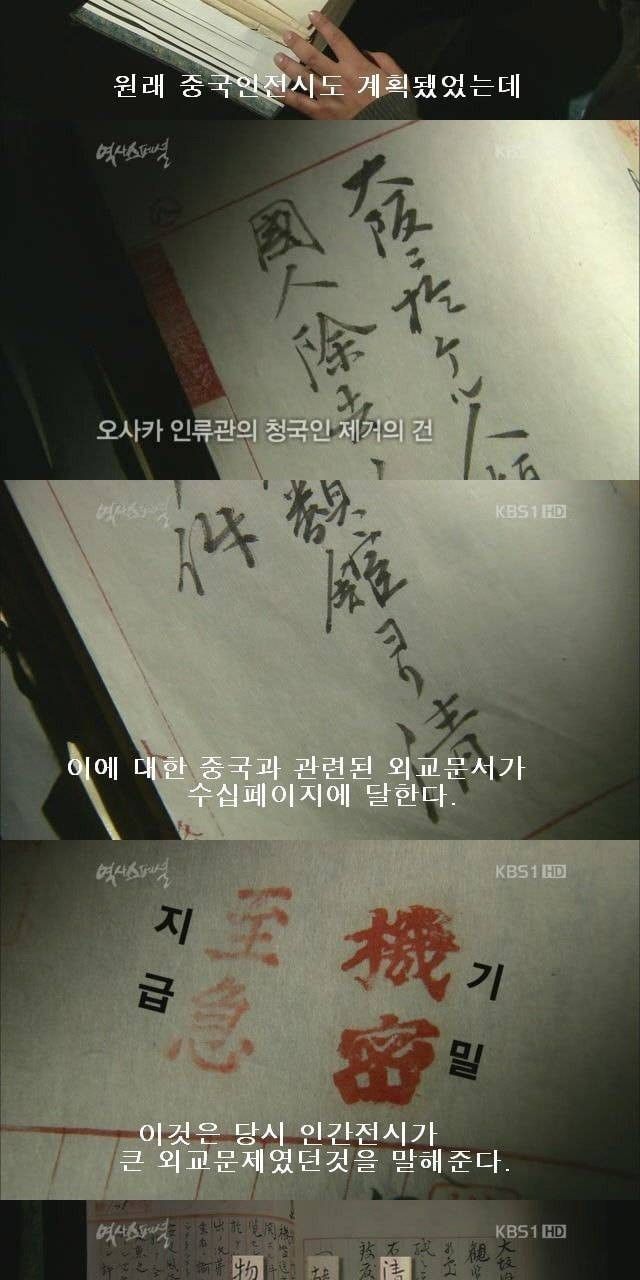 원래 중국인전시도 계획됐었는데
역사스페셜
KBS1
大阪ニ於ケル人
國人除去
오사카 인류관의 청국인 제거의 건
역사스페셜
KBS1 HD
類館ヨリ清
件
이에 대한 중국과 관련된 외교문서가
수십페이지에 달한다.
역사스페셜
KBS1 HD
機密
기밀
至急
지급
이것은 당시 인간전시가
큰 외교문제였던것을 말해준다.
역사스페셜
KBS1 HD
清
物